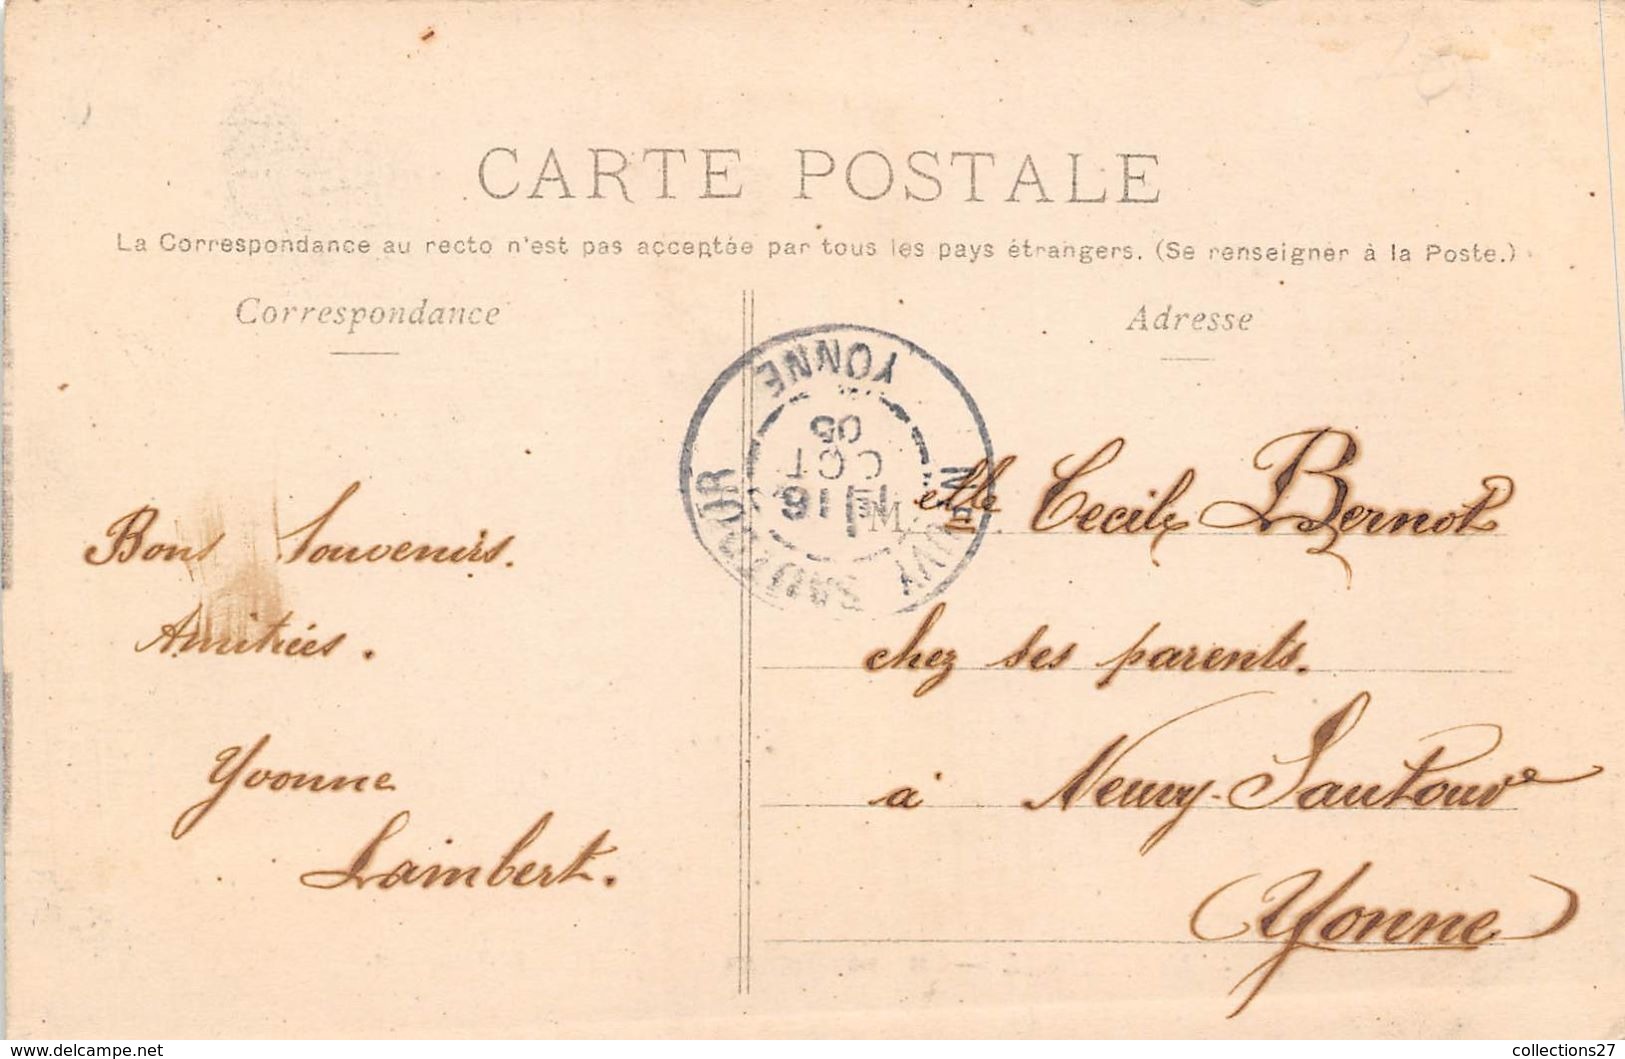 CARTE POSTALE
La Correspondance au recto n'est pas acceptée par tous les pays étrangers. (Se renseigner à la Poste.)
Correspondance
Bons Souvenirs.
Amitiées.
Yvonne
Lambert.
Adresse
Melle Cecile Bernot
chez ses parents.
à Neuvy-Sautour
(Yonne)
NEUVY SAUTOUR
16
OCT
05
YONNE
www.delcampe.net
collections27